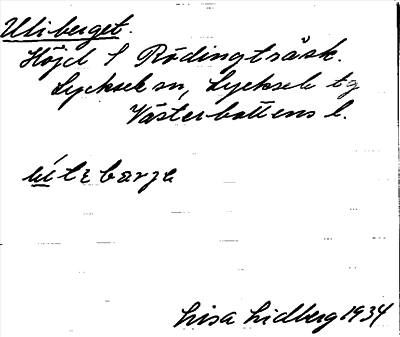 Uliberget.
Höjd S Rödingträsk.
Lycksele sn, Lycksele tg
Västerbottens l.
Lisa Lidberg 1934